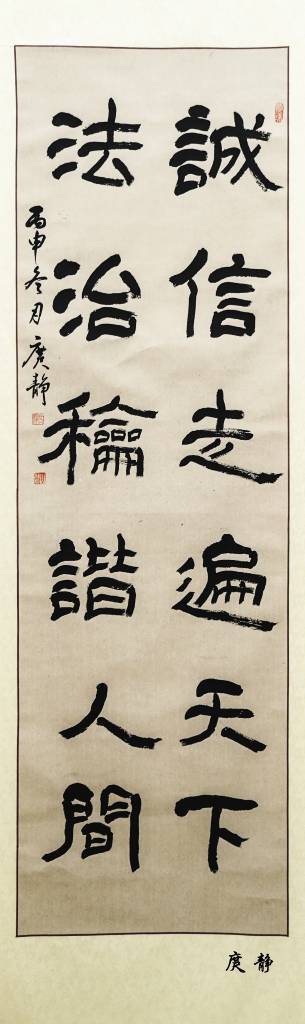 誠信走遍天下
法治龢諧人間
丙申冬月庹静
庹静